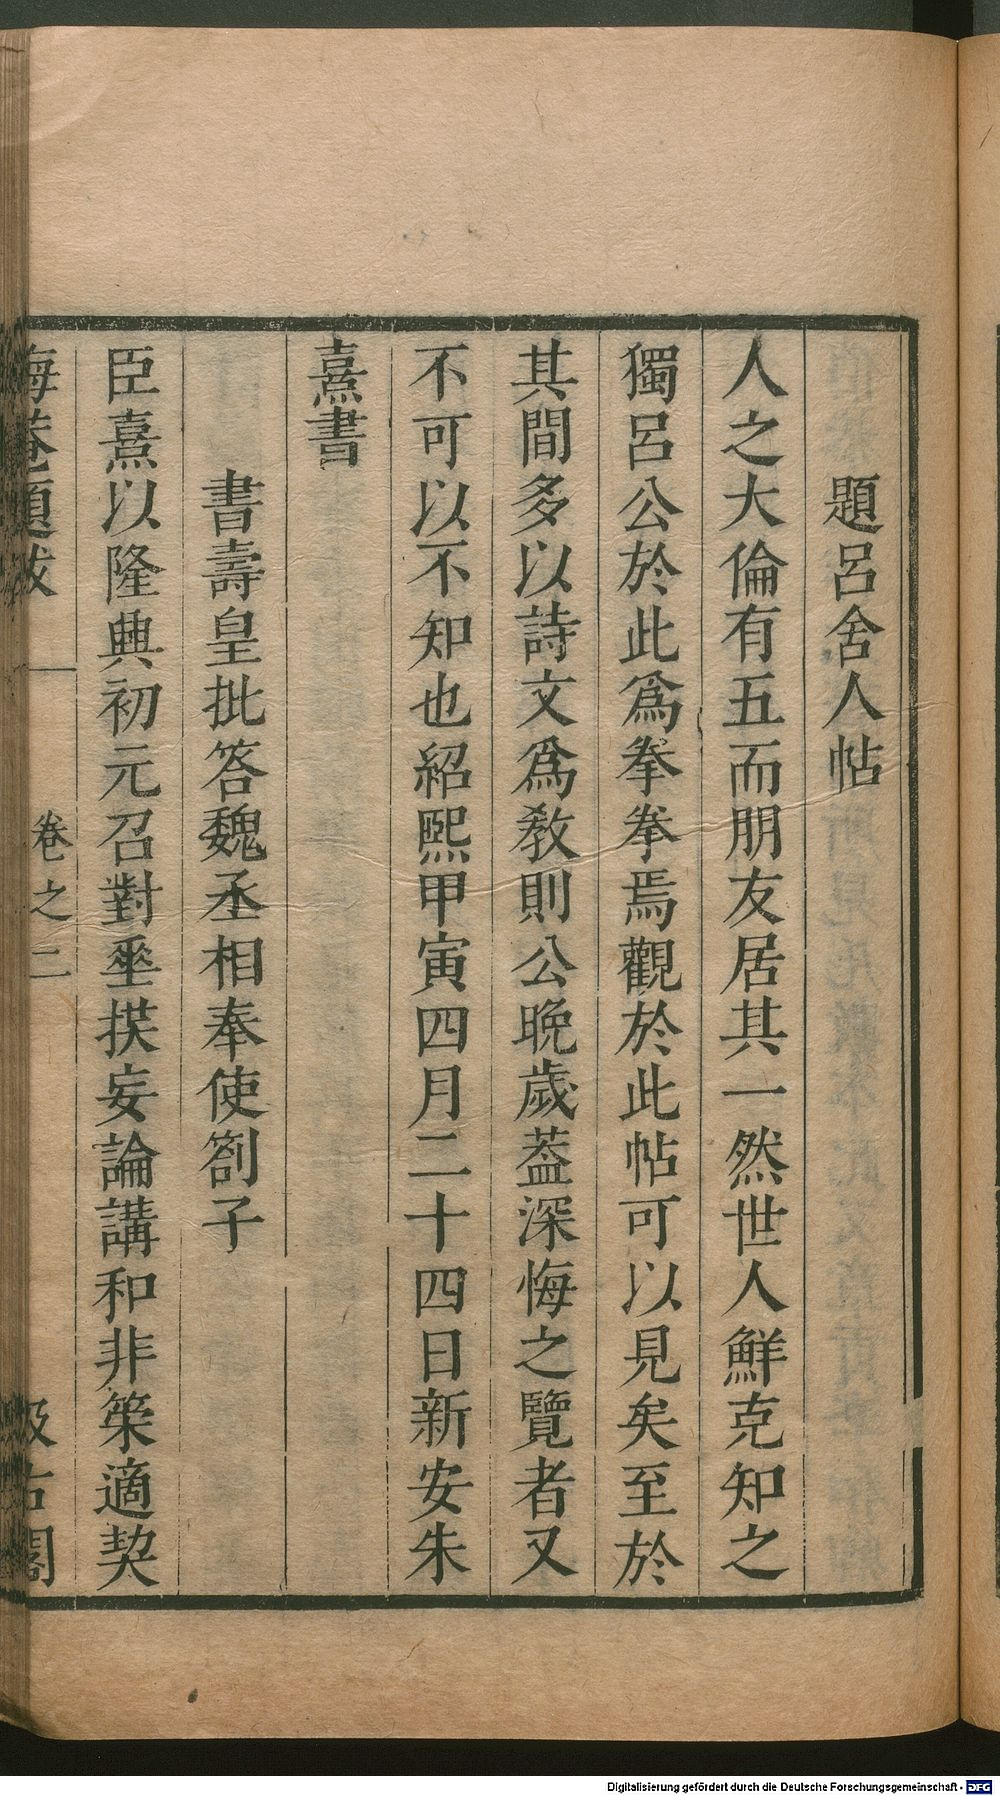 題呂舍人帖
人之大倫有五而朋友居其一然世人鮮克知之
獨呂公於此爲拳拳焉觀於此帖可以見矣至於
其間多以詩文爲敎則公晚歲葢深悔之覽者又
不可以不知也紹熙甲寅四月二十四日新安朱
熹書
書壽皇批答魏丞相奉使劄子
臣熹以隆興初元召對垂拱妄論講和非策適契
晦菴題跋
卷之二
汲古閣
Digitalisierung gefördert durch die Deutsche Forschungsgemeinschaft - DFG